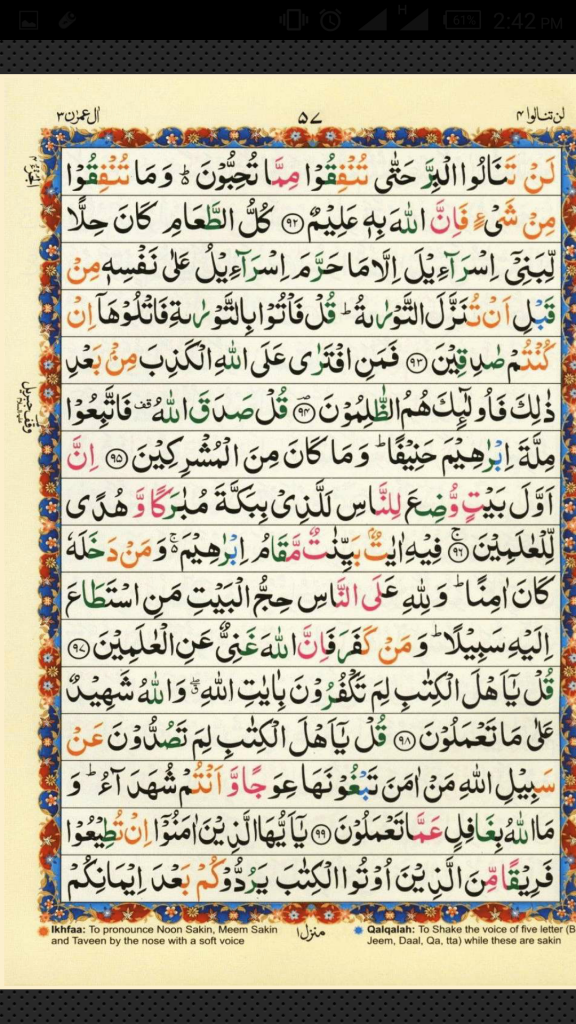 H 61% 2:42 PM
اٰل عمرٰن ٣ ٥٧ لن تنالوا ٤
لَنْ تَنَالُوا الْبِرَّ حَتّٰى تُنْفِقُوْا مِمَّا تُحِبُّوْنَ ؕ وَ مَا تُنْفِقُوْا
مِنْ شَیْءٍ فَاِنَّ اللّٰهَ بِهٖ عَلِیْمٌ ﴿٩٢﴾ كُلُّ الطَّعَامِ كَانَ حِلًّا
لِّبَنِیْۤ اِسْرَآءِیْلَ اِلَّا مَا حَرَّمَ اِسْرَآءِیْلُ عَلٰى نَفْسِهٖ مِنْ
قَبْلِ اَنْ تُنَزَّلَ التَّوْرٰىةُ ؕ قُلْ فَاْتُوْا بِالتَّوْرٰىةِ فَاتْلُوْهَاۤ اِنْ
كُنْتُمْ صٰدِقِیْنَ ﴿٩٣﴾ فَمَنِ افْتَرٰى عَلَى اللّٰهِ الْكَذِبَ مِنْۢ بَعْدِ
ذٰلِكَ فَاُولٰٓئِكَ هُمُ الظّٰلِمُوْنَ ﴿٩٤﴾ قُلْ صَدَقَ اللّٰهُ ۫ فَاتَّبِعُوْا
مِلَّةَ اِبْرٰهِیْمَ حَنِیْفًا ؕ وَ مَا كَانَ مِنَ الْمُشْرِكِیْنَ ﴿٩٥﴾ اِنَّ
اَوَّلَ بَیْتٍ وُّضِعَ لِلنَّاسِ لَلَّذِیْ بِبَكَّةَ مُبٰرَكًا وَّ هُدًى
لِّلْعٰلَمِیْنَ ﴿٩٦﴾ فِیْهِ اٰیٰتٌۢ بَیِّنٰتٌ مَّقَامُ اِبْرٰهِیْمَ ۚ وَ مَنْ دَخَلَهٗ
كَانَ اٰمِنًا ؕ وَ لِلّٰهِ عَلَى النَّاسِ حِجُّ الْبَیْتِ مَنِ اسْتَطَاعَ
اِلَیْهِ سَبِیْلًا ؕ وَ مَنْ كَفَرَ فَاِنَّ اللّٰهَ غَنِیٌّ عَنِ الْعٰلَمِیْنَ ﴿٩٧﴾
قُلْ یٰۤاَهْلَ الْكِتٰبِ لِمَ تَكْفُرُوْنَ بِاٰیٰتِ اللّٰهِ ۖ وَ اللّٰهُ شَهِیْدٌ
عَلٰى مَا تَعْمَلُوْنَ ﴿٩٨﴾ قُلْ یٰۤاَهْلَ الْكِتٰبِ لِمَ تَصُدُّوْنَ عَنْ
سَبِیْلِ اللّٰهِ مَنْ اٰمَنَ تَبْغُوْنَهَا عِوَجًا وَّ اَنْتُمْ شُهَدَآءُ ؕ وَ
مَا اللّٰهُ بِغَافِلٍ عَمَّا تَعْمَلُوْنَ ﴿٩٩﴾ یٰۤاَیُّهَا الَّذِیْنَ اٰمَنُوْۤا اِنْ تُطِیْعُوْا
فَرِیْقًا مِّنَ الَّذِیْنَ اُوْتُوا الْكِتٰبَ یَرُدُّوْكُمْ بَعْدَ اِیْمَانِكُمْ
منزل ١
Ikhfaa: To pronounce Noon Sakin, Meem Sakin
and Taveen by the nose with a soft voice
Qalqalah: To Shake the voice of five letter (B
Jeem, Daal, Qa, tta) while these are sakin